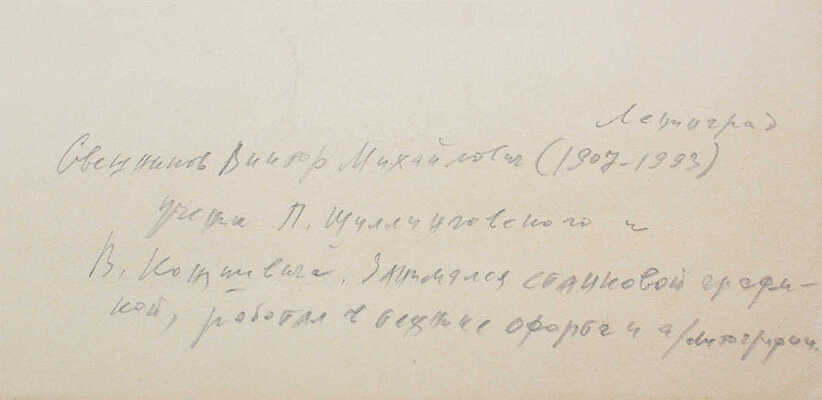 Ленинград
Свешников Виктор Михайлович (1907-1993)
ученик П. Шиллинговского и
В. Конашевича. Занимался станковой графи-
кой, работал в технике офорта и а/литографии.